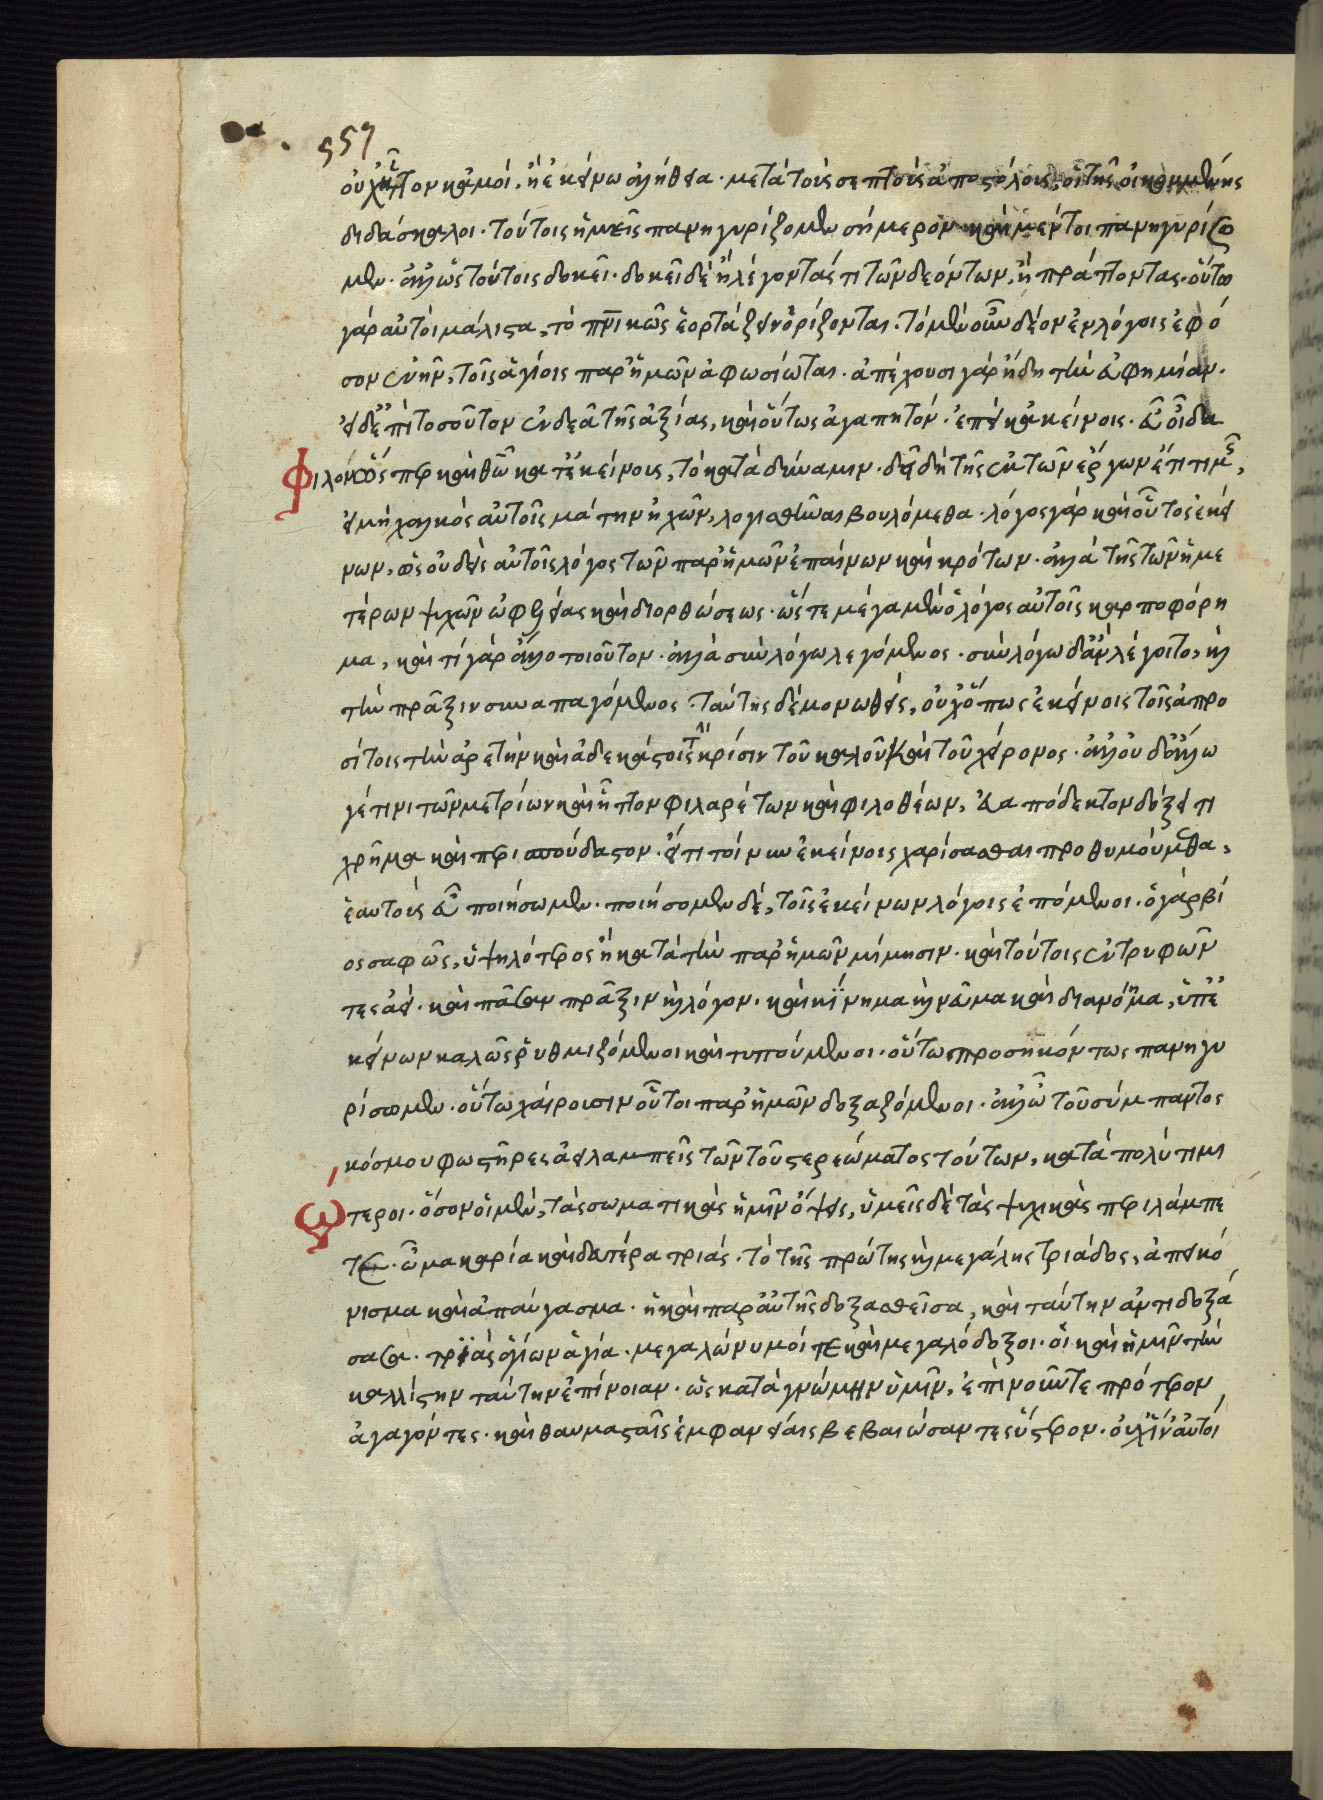 557
οὐχ ἧττον κἀμοί, ἢ ἐκείνω ἀλήθεια· μετὰ τοὺς σεπτοὺς ἀποστόλους, οἱ τῆς οἰκουμένης
διδάσκαλοι· τούτοις ἡμεῖς πανηγυρίζομεν σήμερον· καὶ μέντοι πανηγυρίζο
μεν· ἀλλ' ὡς τούτοις δοκεῖ· δοκεῖ δὲ ἢ λέγοντάς τι τῶν δεόντων, ἢ πράττοντας· οὕτω
γὰρ αὐτοὶ μάλιστα, τὸ πνικῶς ἑορτάζειν ὁρίζονται. τὸ μὲν οὖν δέον ἐν λόγοις ἐφ' ὅ
σον ἐνῆν, τοῖς ἁγίοις παρ' ἡμῶν ἀφωσίωται· ἀπέχουσι γὰρ ἤδη τὴν εὐφημίαν·
εἰ δ' ἐπὶ τοσοῦτον ἐνδεᾶ τῆς ἀξίας, καὶ οὕτως ἀγαπητόν· ἐπεὶ κἀκείνοις· εὖ οἶδα
φίλον ὥσπερ καὶ θῶ κατ' ἐκείνους, τὸ κατὰ δύναμιν· δεῖ δὴ τῆς ἐκ τῶν ἔργων ἔτι τιμῆς,
εἰ μὴ χαλκὸς αὐτοῖς μάτην ἠχῶν, λογισθῆναι βουλόμεθα· λόγος γὰρ καὶ οὗτος ἐκεί
νων, ὡς οὐδεὶς αὐτοῖς λόγος τῶν παρ' ἡμῶν ἐπαίνων καὶ κρότων· ἀλλὰ τῆς τῶν ἡμε
τέρων ψυχῶν ὠφελείας καὶ διορθώσεως· ὥστε μέγα μὲν ὁ λόγος αὐτοῖς καρποφόρη
μα, καὶ τί γὰρ ἄλλο τοιοῦτον· ἀλλὰ σὺν λόγω λεγόμενος· σὺν λόγω δ' ἂν λέγοιτο, καὶ
τὴν πρᾶξιν συναπαγόμενος· ταύτης δὲ μονωθείς, οὐχ ὅπως ἐκείνοις τοῖς ἀπρο
σίτοις τὴν ἀρετὴν καὶ ἀδεκάστοις τὴν κρίσιν τοῦ καλοῦ καὶ τοῦ χείρονος· ἀλλ' οὐδ' ἄλλω
γέ τινι τῶν μετρίων καὶ ἧττον φιλαρέτων καὶ φιλοθέων, εὐαπόδεκτον δόξει τι
χρῆμα καὶ περισπούδαστον· εἴ τι τοίνυν ἐκείνοις χαρίσασθαι προθυμούμεθα,
ἑαυτοὺς εὖ ποιήσωμεν· ποιήσομεν δέ, τοῖς ἐκείνων λόγοις ἑπόμενοι· ὁ γὰρ βί
ος σαφῶς, ὑψηλότερος ἢ κατὰ τὴν παρ' ἡμῶν μίμησιν· καὶ τούτοις ἐντρυφῶν
τες ἀεί· καὶ πᾶσαν πρᾶξιν καὶ λόγον· καὶ κίνημα καὶ νεῦμα καὶ διανόημα, ὑπ' ἐ
κείνων καλῶς ῥυθμιζόμενοι καὶ τυπούμενοι· οὕτω προσηκόντως πανηγυ
ρίσωμεν· οὕτω χαίρουσιν οὗτοι παρ' ἡμῶν δοξαζόμενοι· ἀλλ' ὦ τοῦ σύμπαντος
κόσμου φωστῆρες ἀειλαμπεῖς τῶν τοῦ στερεώματος τούτων, κατὰ πολὺ τιμι
ώτεροι· ὅσον οἱ μὲν, τὰς σωματικὰς ἡμῖν ὄψεις, ὑμεῖς δὲ τὰς ψυχικὰς περιλάμπε
τε· ὦ μακαρία καὶ δευτέρα τριάς· τὸ τῆς πρώτης καὶ μεγάλης τριάδος, ἀπεικό
νισμα καὶ ἀπαύγασμα· ἡ καὶ παρ' αὐτῆς δοξασθεῖσα, καὶ ταύτην ἀντιδοξά
σασα· τριὰς ἁγίων ἁγία· μεγαλώνυμοί τε καὶ μεγαλόδοξοι· οἱ καὶ ἡμῖν τὴν
καλλίστην ταύτην ἐπίνοιαν· ὡς κατὰ γνώμην ὑμῖν, ἐπὶ νοῦν τε πρότερον
ἀγαγόντες· καὶ θαυμασταῖς ἐμφανείαις βεβαιώσαντες ὕστερον· οὐχ ἵν' αὐτοί